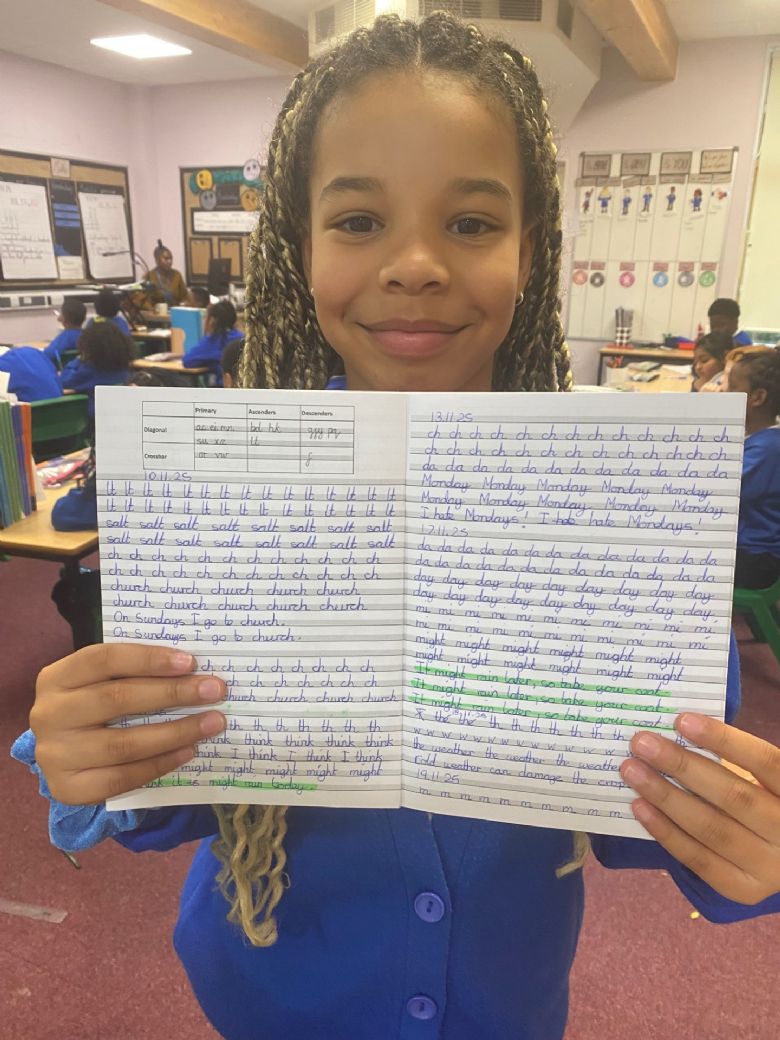 Primary Ascenders Descenders
Diagonal ac ei mn bd hk gjy pq
su xz lt
Crossbar or vw f
10.11.25
lt lt lt lt lt lt lt lt lt lt lt lt lt lt lt
lt lt lt lt lt lt lt lt lt lt lt lt lt lt lt
salt salt salt salt salt salt salt salt
salt salt salt salt salt salt salt salt
ch ch ch ch ch ch ch ch ch ch ch
ch ch ch ch ch ch ch ch ch ch ch
church church church church church
church church church church church
On Sundays I go to church.
On Sundays I go to church.
ch ch ch ch ch ch ch
ch ch ch ch ch ch ch
church church church
th th th th th th
think think think think
think I think I think I think
might might might might might
it is might rain today.
13.11.25
ch ch ch ch ch ch ch ch ch ch ch ch ch
ch ch ch ch ch ch ch ch ch ch ch ch ch
da da da da da da da da da da da da
Monday Monday Monday Monday Monday
Monday Monday Monday Monday Monday
I hate Mondays! I hate Mondays!
17.11.25
da da da da da da da da da da da da
da da da da da da da da da da da da
day day day day day day day day day
day day day day day day day day day
mi mi mi mi mi mi mi mi mi mi mi
mi mi mi mi mi mi mi mi mi mi mi
might might might might might might
might might might might might might
It might rain later, so take your coat.
It might rain later, so take your coat.
It might rain later, so take your coat.
18.11.25
the th th th th th th th
w w w w w w w w w w w
the weather the weather the weather
Cold weather can damage the crops
19.11.25
m m m m m m m m